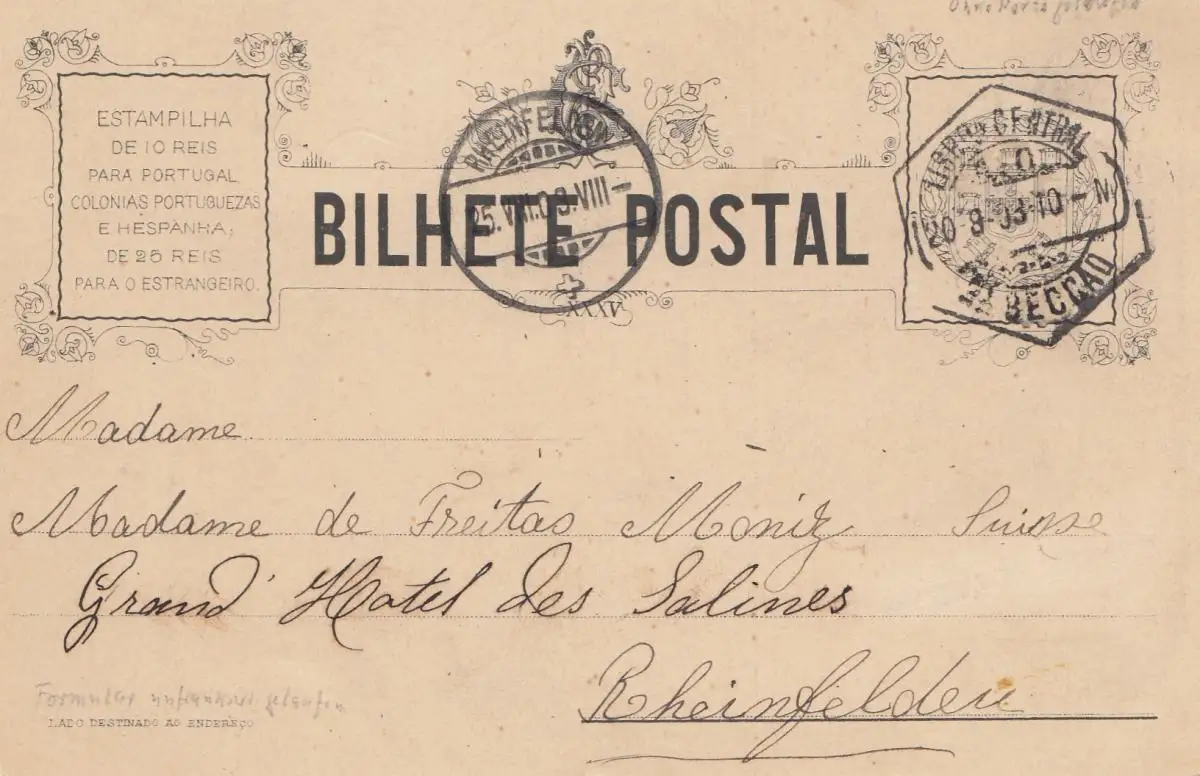 Ohne Porto gelaufen
ESTAMPILHA
DE 10 REIS
PARA PORTUGAL
COLONIAS PORTUGUEZAS
E HESPANHA;
DE 25 REIS
PARA O ESTRANGEIRO.
BILHETE POSTAL
RHEINFELDEN
25.VIII.03.VIII-
XXXV
LISBOA CENTRAL
20-8-03-10-N
3ª SECÇÃO
Madame
Madame de Freitas Moniz Suisse
Grand Hotel des Salines
Rheinfelden
Formular unfrankiert gelaufen
LADO DESTINADO AO ENDEREÇO